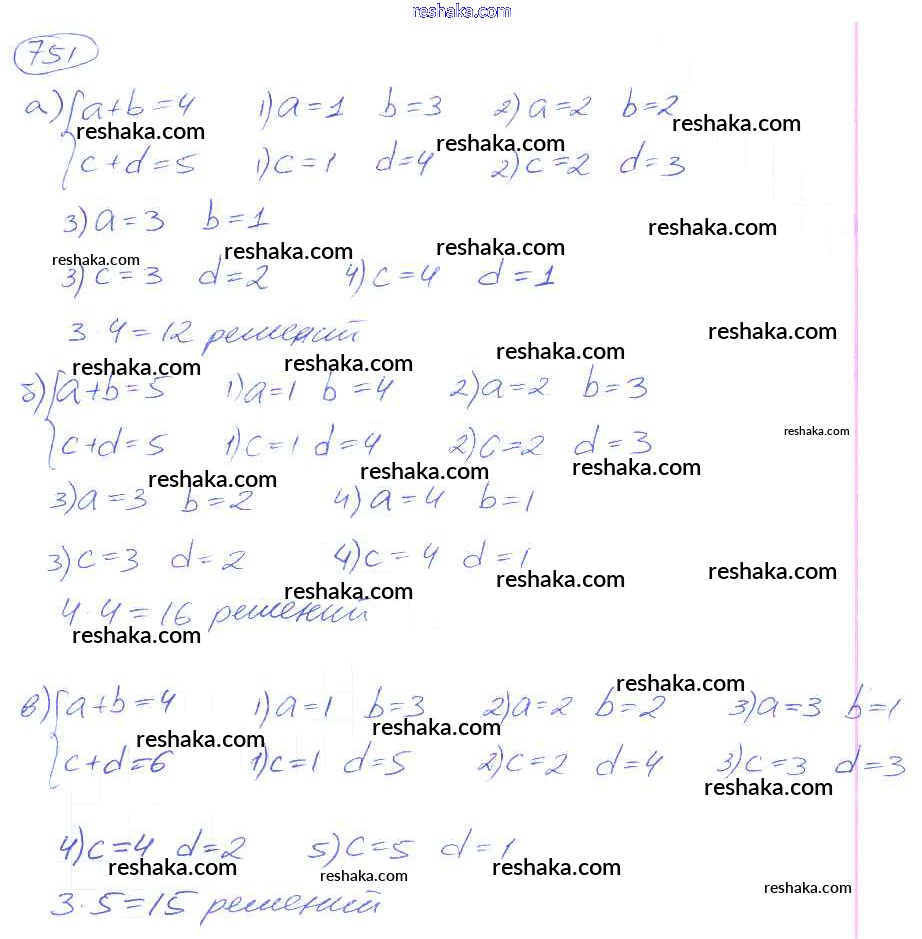 reshaka.com
751
а) { a+b=4 1) a=1 b=3 2) a=2 b=2
reshaka.com reshaka.com reshaka.com
c+d=5 1) c=1 d=4 2) c=2 d=3
3) a=3 b=1 reshaka.com
reshaka.com reshaka.com reshaka.com
3) c=3 d=2 4) c=4 d=1
3 4=12 решений reshaka.com
reshaka.com reshaka.com reshaka.com
б) { a+b=5 1) a=1 b=4 2) a=2 b=3
reshaka.com
c+d=5 1) c=1 d=4 2) c=2 d=3
reshaka.com reshaka.com reshaka.com
3) a=3 b=2 4) a=4 b=1
3) c=3 d=2 4) c=4 d=1
reshaka.com reshaka.com reshaka.com
4·4=16 решений
reshaka.com
reshaka.com
в) { a+b=4 1) a=1 b=3 2) a=2 b=2 3) a=3 b=1
reshaka.com reshaka.com
c+d=6 1) c=1 d=5 2) c=2 d=4 3) c=3 d=3
reshaka.com
4) c=4 d=2 5) c=5 d=1
reshaka.com reshaka.com reshaka.com
3·5=15 решений reshaka.com